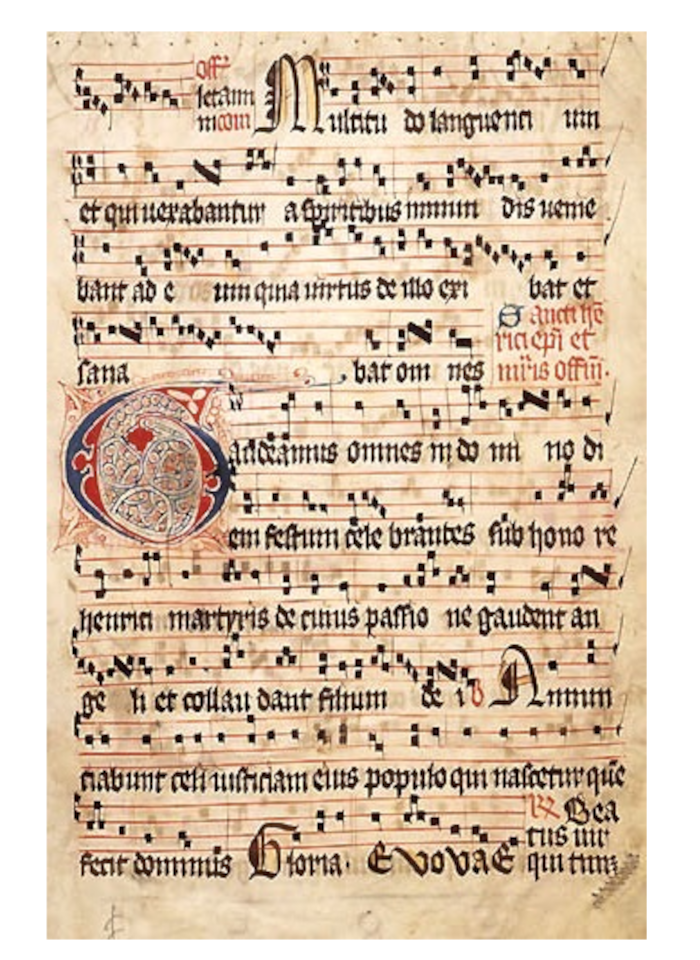 Off
letamī
Multitu do languenti um
et qui uexabantur a spiritibus inmun dis uenie
bant ad e um quia uirtus de illo exi bat et
sana bat om nes
Sancti hē
rici epī et
mr̄is offīī.
Gaudeamus omnes in do mi no di
em festum cele brantes sub hono re
henrici martyris de cuius passio ne gaudent an
ge li et collau dant filium de i Annun
ciabunt celi iusticiam eius populo qui nascetur quē
fecit dominus Gloria. EvovaE
Bea
tus uir
qui tim